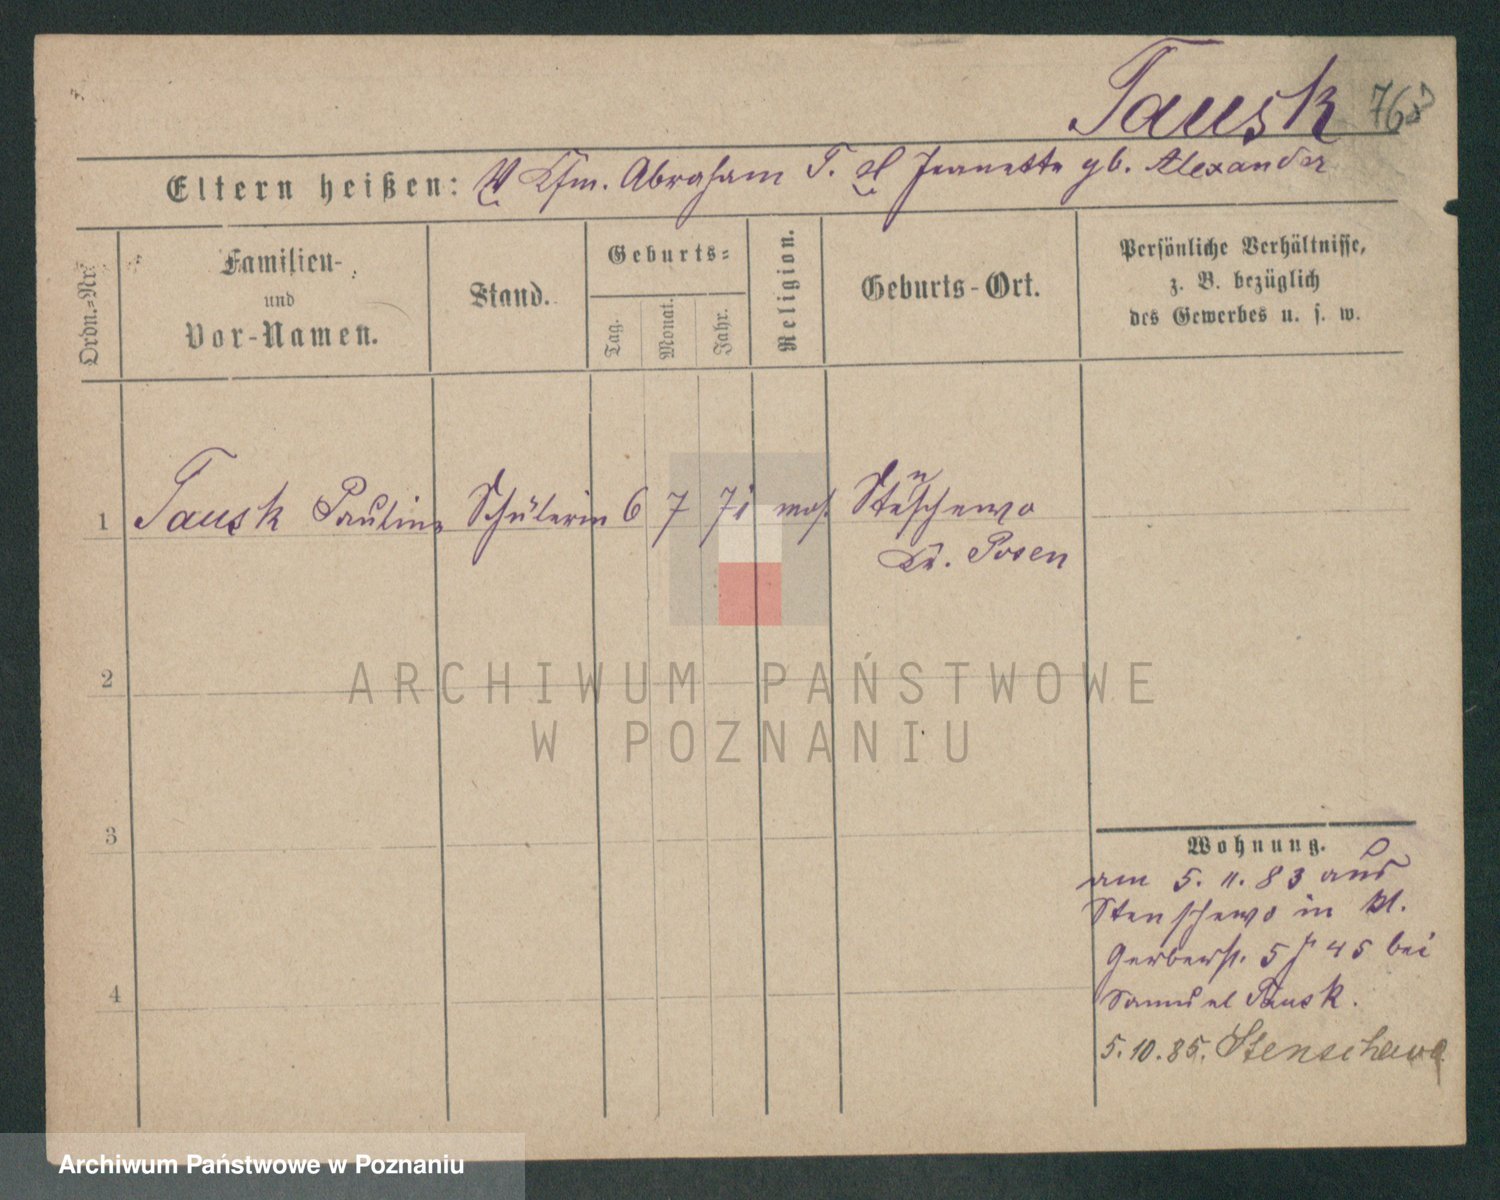 Tausk
Eltern heißen: Kfm. Abraham T. Jeanette gb. Alexander
Ordn.=Nr.
Familien-
und
Vor-Namen.
Stand.
Geburts=
Tag.
Monat.
Jahr.
Religion.
Geburts-Ort.
Persönliche Verhältnisse,
z. B. bezüglich
des Gewerbes u. s. w.
1 Tausk Pauline Schülerin 6 7 71 mos. Stenschewo
Kr. Posen
2
3
4
Wohnung.
am 5. 11. 83 aus
Stenschewo in kl.
Gerberst. 5 45 bei
Samuel Tausk.
5. 10. 85. Stenschewo
ARCHIWUM PAŃSTWOWE
W POZNANIU
Archiwum Państwowe w Poznaniu